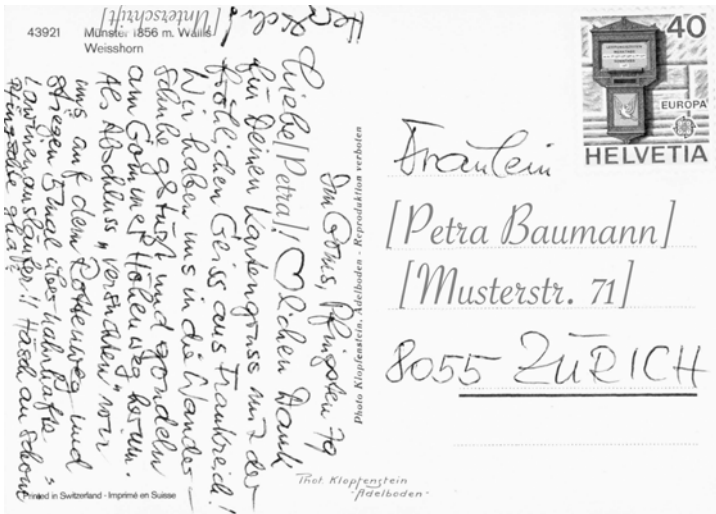 43921 Münster 1356 m. Wallis
Weisshorn
[Unterschrift]
Im Goms, Pfingsten 79
Liebe [Petra]! ♡lichen Dank
für Deinen Kartengruss mit der
fröhlichen Geiss aus Frankreich!
Wir haben uns in die Wander-
schuhe gstürzt und gondeln
am Gommer Höhenweg herum.
Als Abschluss "versnähten" wir
uns auf dem Rottenweg und
stiegen 5 mal über hahnhafte
Lawinenausläufer!! Häsch au schöni
Pfingschte ghaa?
Photo Klopfenstein, Adelboden - Reproduktion verboten
Printed in Switzerland - Imprimé en Suisse
Phot. Klopfenstein
- Adelboden -
40
EUROPA
HELVETIA
Fräulein
[Petra Baumann]
[Musterstr. 71]
8055 ZÜRICH